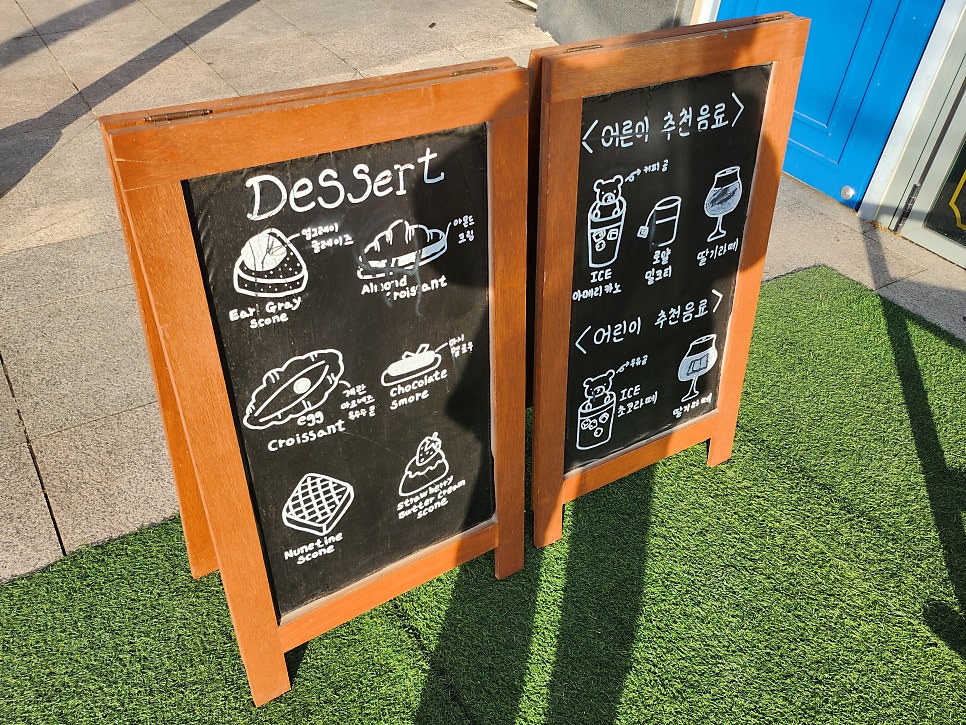 Dessert
얼그레이
글레이즈
Earl Gray
Scone
아몬드
크림
Almond
croissant
계란
마요네즈
옥수수콘
egg
croissant
마시
멜로우
Chocolate
Smore
Nunetine
Scone
strawberry
Butter cream
scone
<어른이 추천음료>
커피곰
ICE
아메리카노
로얄
밀크티
딸기라떼
<어린이 추천음료>
우유곰
ICE
초코라떼
딸기라떼